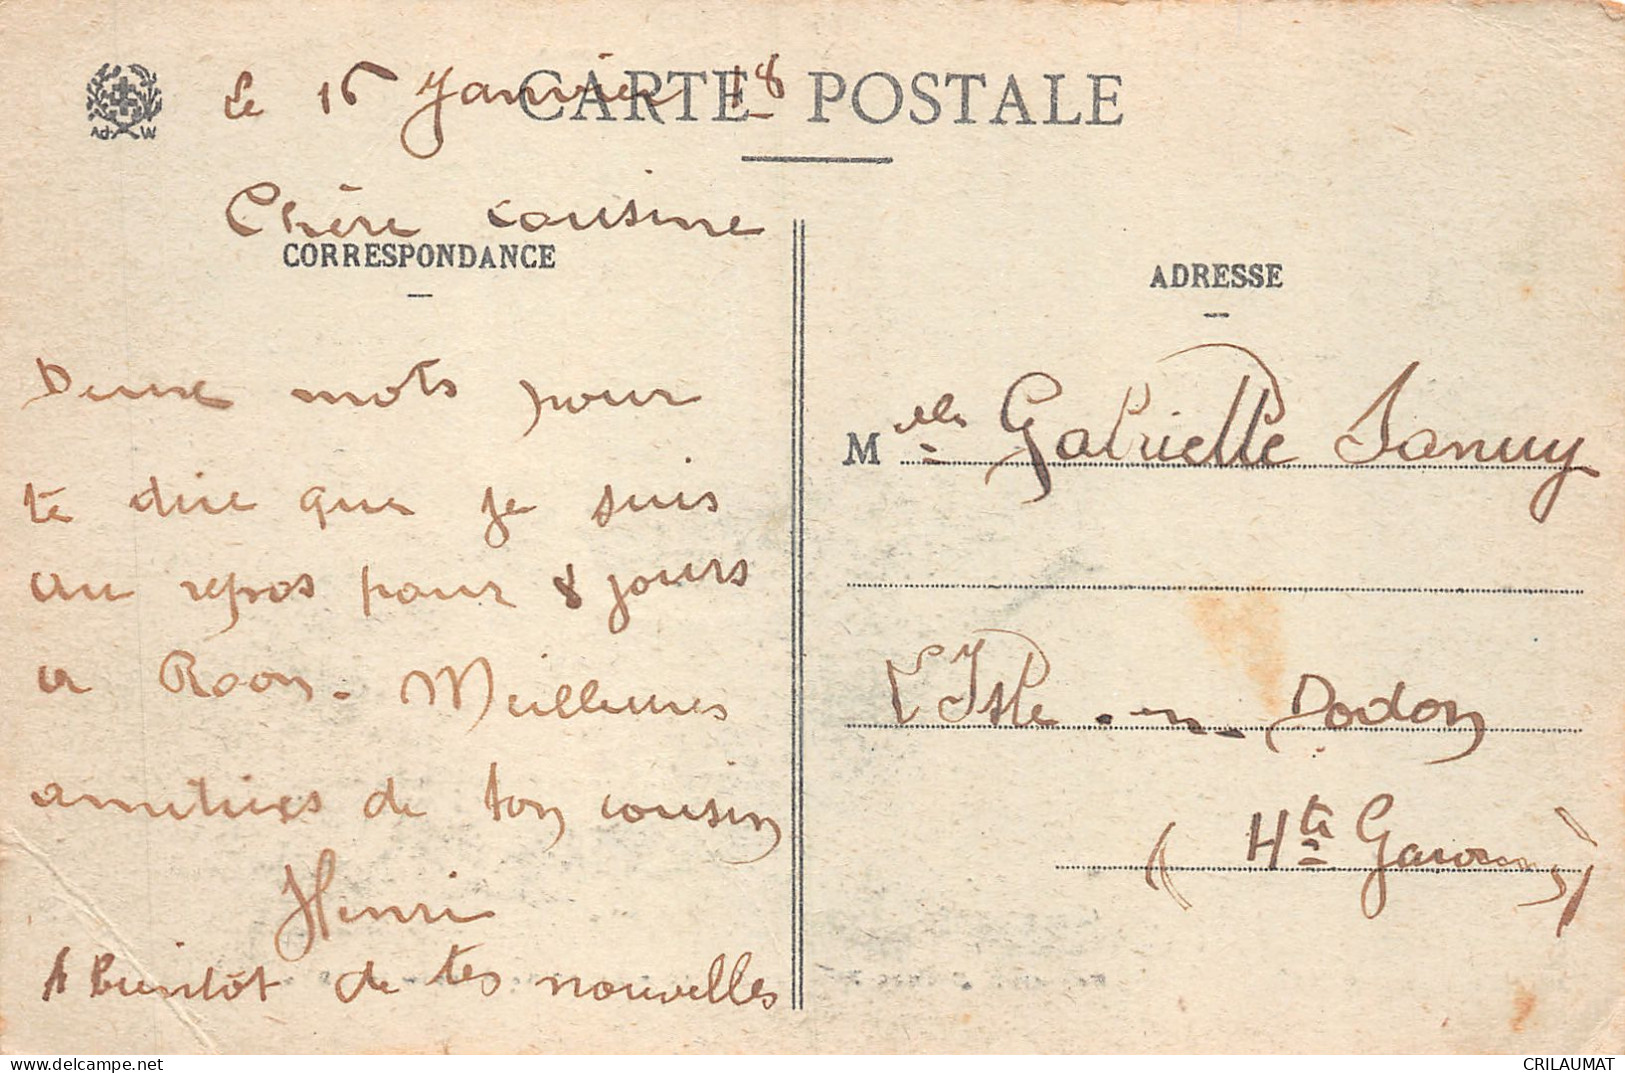 Ad W
CARTE POSTALE
Le 16 Janvier 18
Chère cousine
CORRESPONDANCE
Deux mots pour
te dire que je suis
au repos pour 8 jours
a Raon. Meilleures
amitiées de ton cousin
Henri
A bientôt de tes nouvelles
ADRESSE
Melle Gabrielle
L'Isle-en-Dodon
(Hte Garonne)
delcampe.net
CRILAUMAT